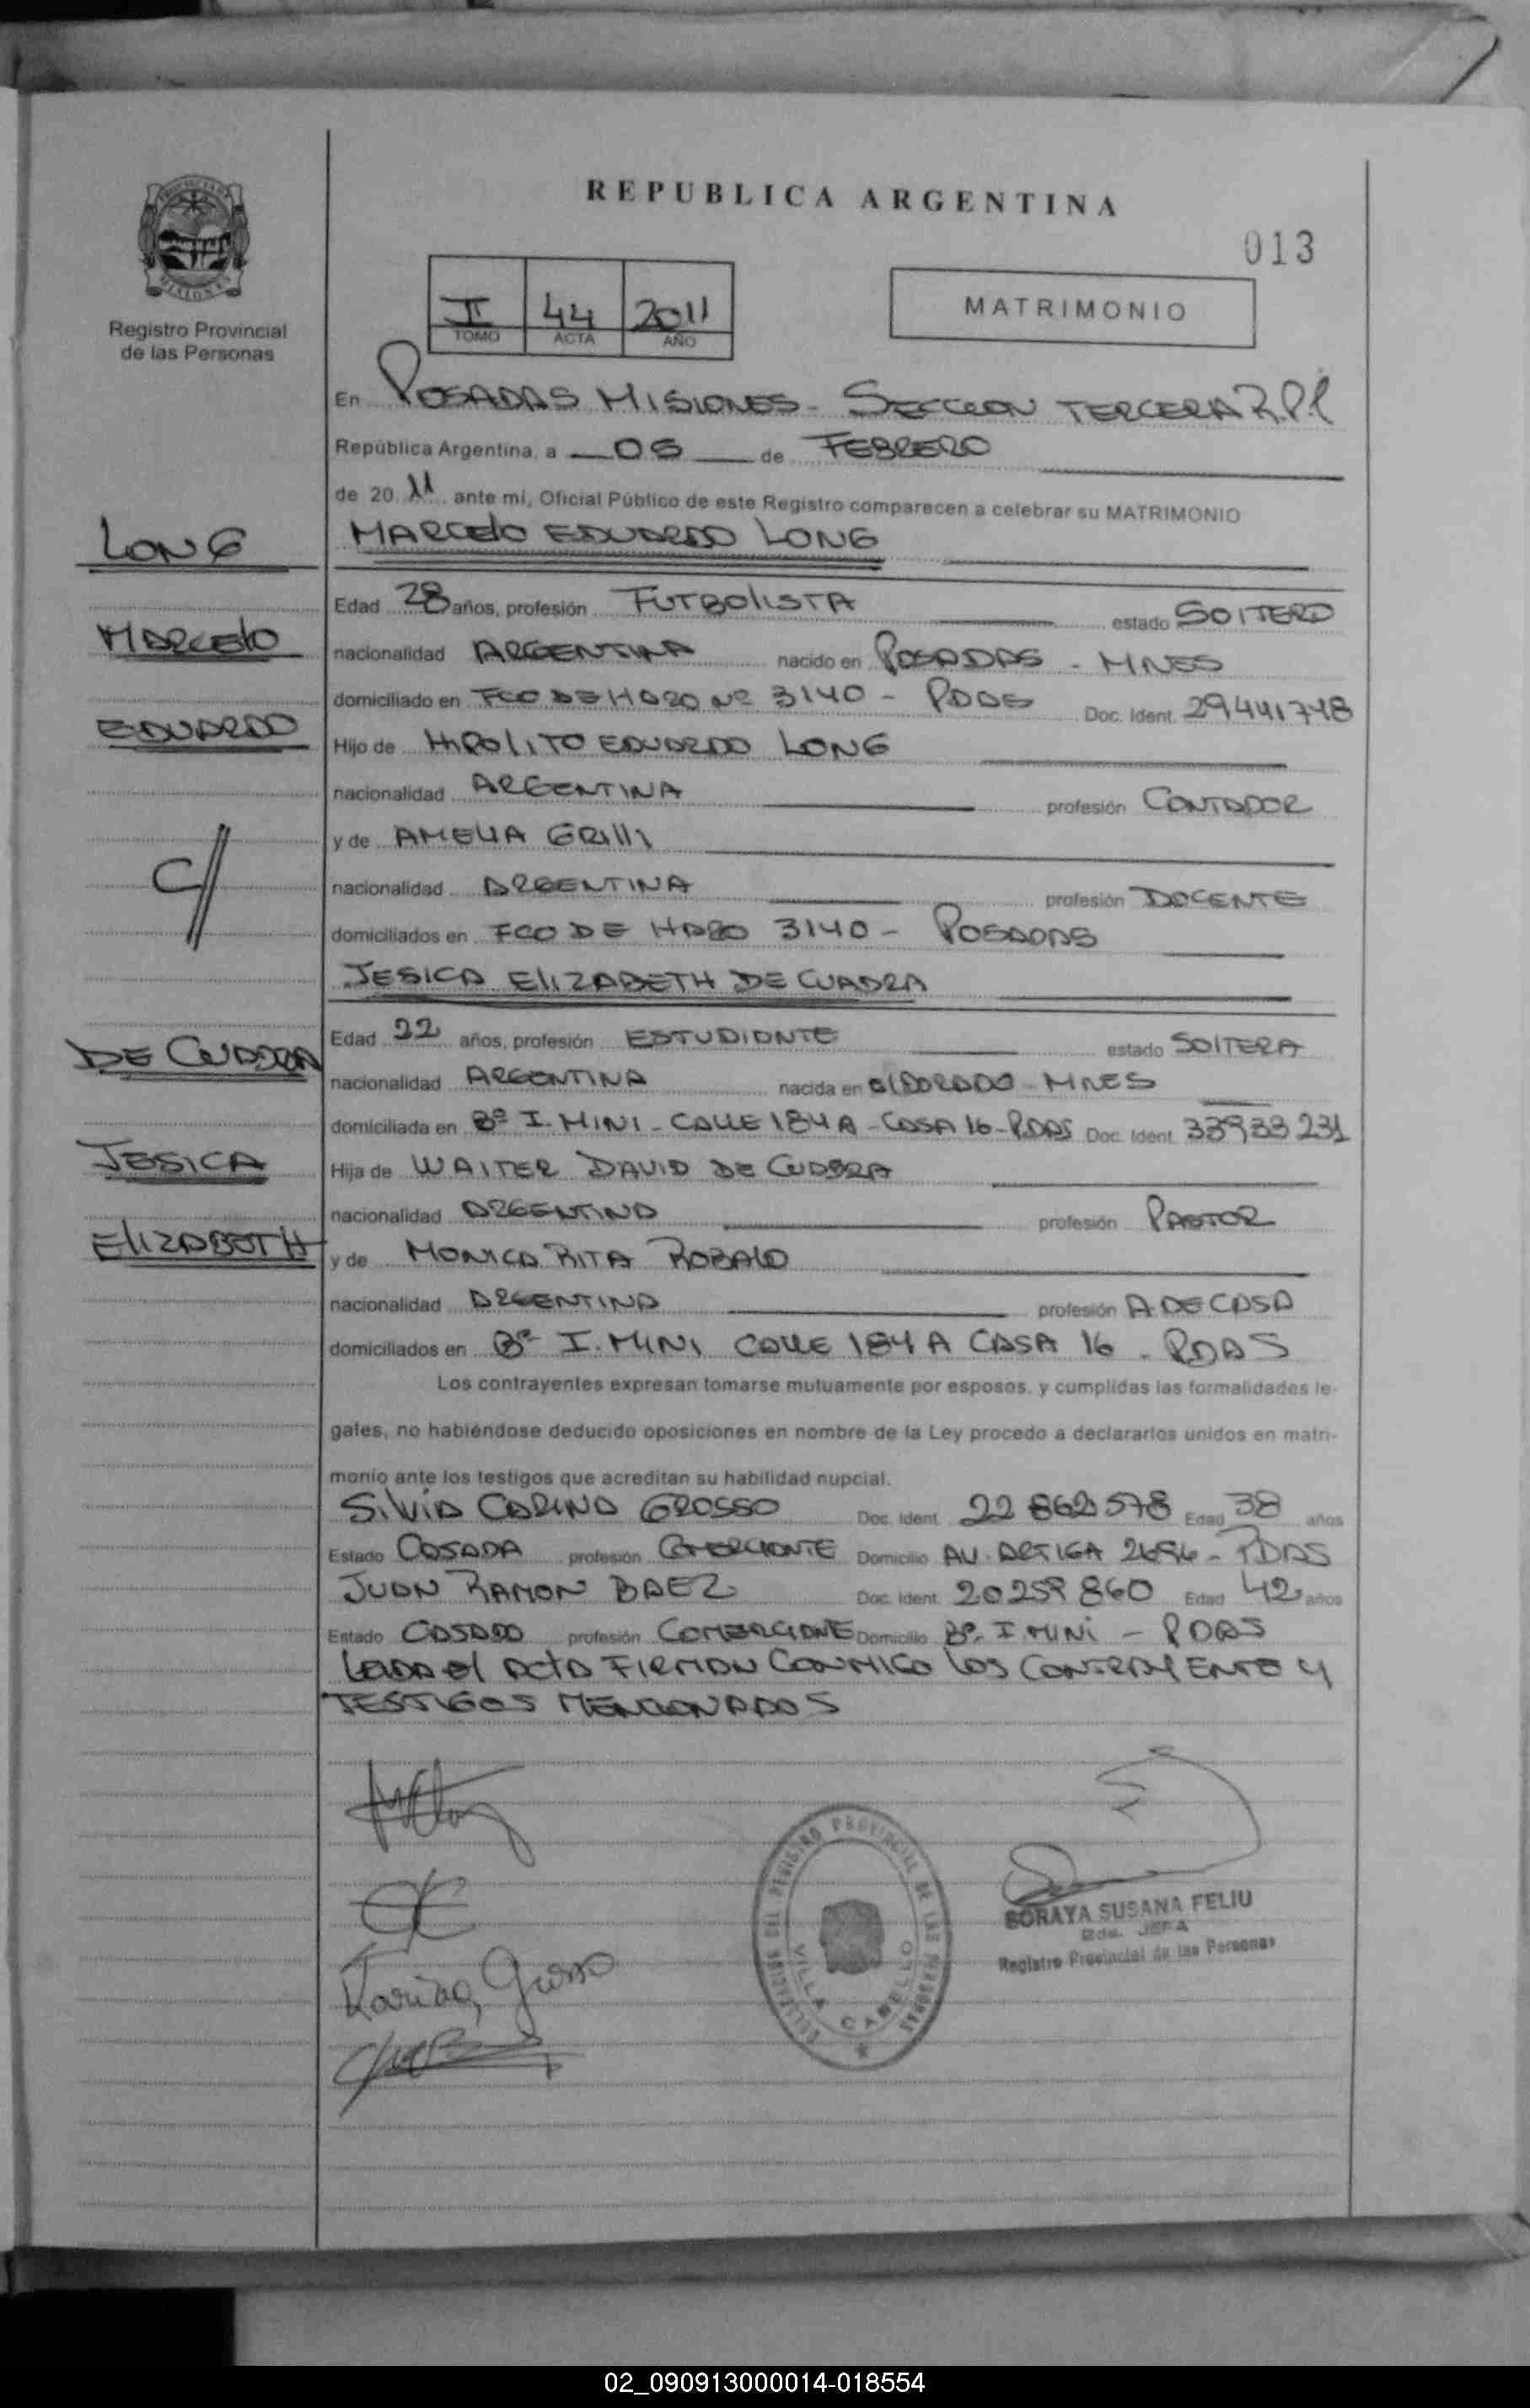 REPUBLICA ARGENTINA
013
Registro Provincial
de las Personas
I 44 2011
TOMO ACTA AÑO
MATRIMONIO
En POSADAS MISIONES - SECCION TERCERA R.P.P
República Argentina, a 05 de FEBRERO
de 20 11 ante mí, Oficial Público de este Registro comparecen a celebrar su MATRIMONIO
LONG
MARCELO EDUARDO LONG
Edad 28 años, profesión FUTBOLISTA estado SOLTERO
MARCELO
nacionalidad ARGENTINA nacido en POSADAS - MNES
domiciliado en FCO DE HARO Nº 3140 - PDAS Doc. Ident. 29441748
EDUARDO
Hijo de HIPOLITO EDUARDO LONG
nacionalidad ARGENTINA profesión CONTADOR
y de AMELIA GRILLI
C//
nacionalidad ARGENTINA profesión DOCENTE
domiciliados en FCO DE HARO 3140 - POSADAS
JESICA ELIZABETH DE CUADRA
Edad 22 años, profesión ESTUDIANTE estado SOLTERA
DE CUADRA
nacionalidad ARGENTINA nacida en ELDORADO - MNES
domiciliada en Bº I. MINI - CALLE 184 A - CASA 16 - PDAS Doc. Ident. 33933231
JESICA
Hija de WALTER DAVID DE CUADRA
nacionalidad ARGENTINA profesión PASTOR
ELIZABETH
y de MONICA RITA ROBALO
nacionalidad ARGENTINA profesión A. DE CASA
domiciliados en Bº I. MINI CALLE 184 A CASA 16 - PDAS
Los contrayentes expresan tomarse mutuamente por esposos, y cumplidas las formalidades le-
gales, no habiéndose deducido oposiciones en nombre de la Ley procedo a declararlos unidos en matri-
monio ante los testigos que acreditan su habilidad nupcial.
SILVIA CARINA GROSSO Doc. Ident. 22 862 578 Edad 38 años
Estado CASADA profesión COMERCIANTE Domicilio AV. ARTIGA 2694 - PDAS
JUAN RAMON BAEZ Doc. Ident. 20259860 Edad 42 años
Estado CASADO profesión COMERCIANTE Domicilio Bº. I MINI - PDAS
LEIDA EL ACTA FIRMAN CONMIGO LOS CONTRAYENTE Y
TESTIGOS MENCIONADOS
Karina Grosso
DEL REGISTRO PROVINCIAL DE LAS PERSONAS
VILLA CABELLO
SORAYA SUSANA FELIU
2da. JEFA
Registro Provincial de las Personas
02_090913000014-018554